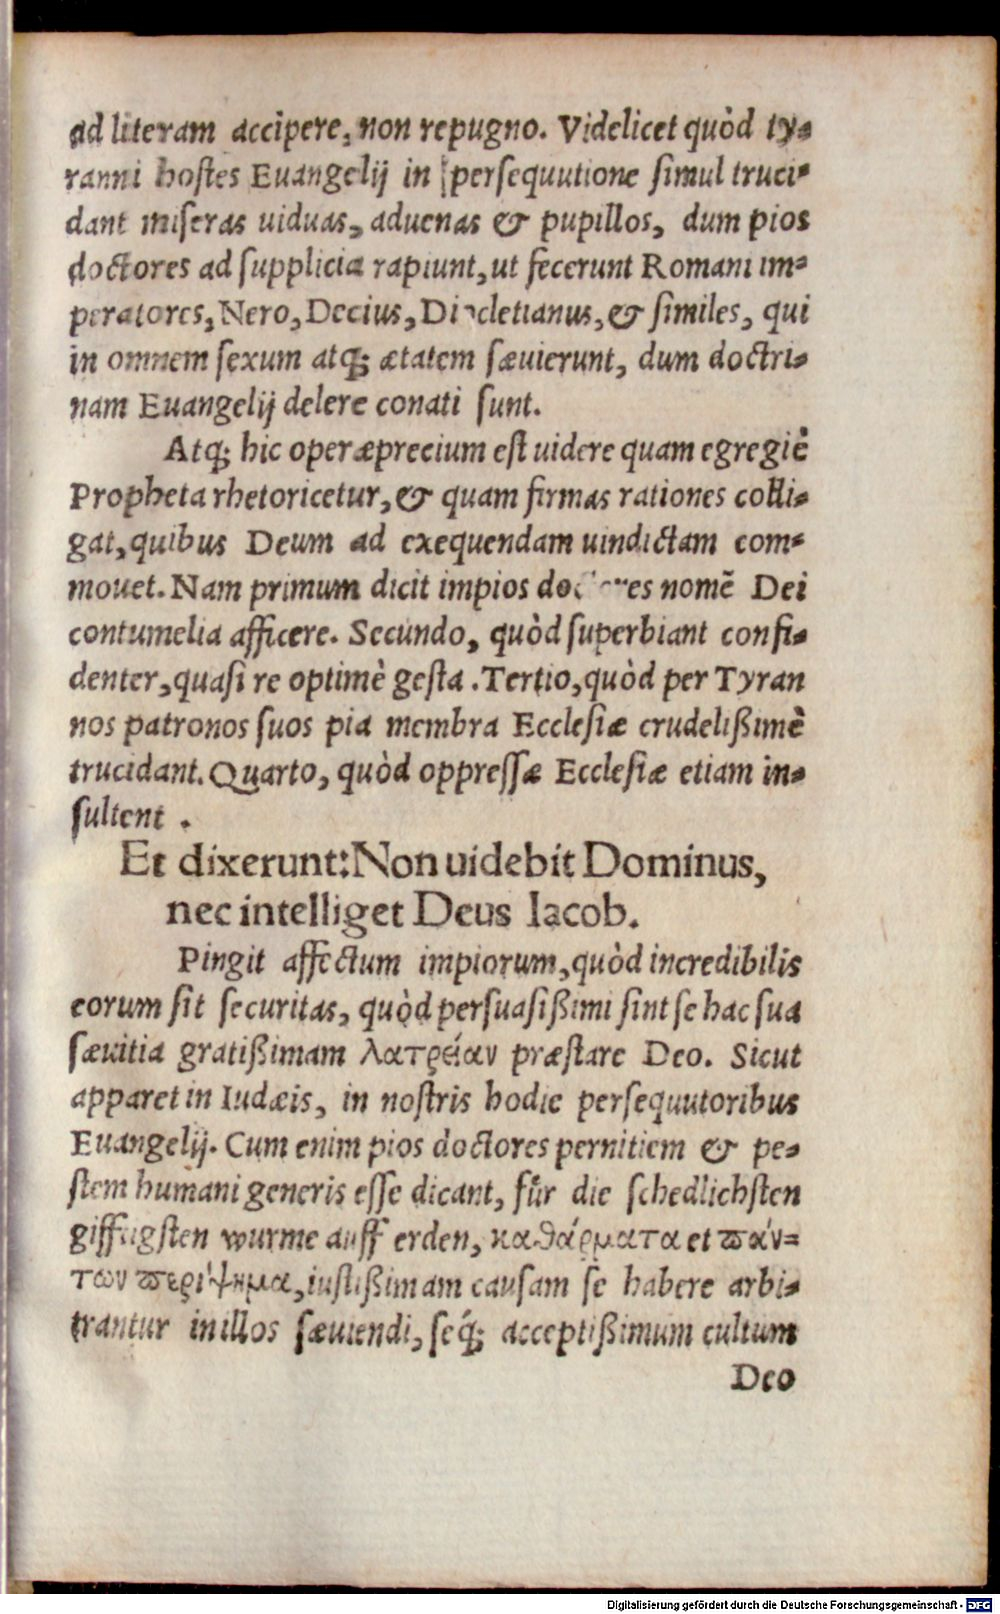 ad literam accipere, non repugno. Videlicet quòd ty-
ranni hostes Euangelij in persequutione simul truci-
dant miseras uiduas, aduenas & pupillos, dum pios
doctores ad supplicia rapiunt, ut fecerunt Romani im-
peratores, Nero, Decius, Diocletianus, & similes, qui
in omnem sexum atq; ætatem sæuierunt, dum doctri-
nam Euangelij delere conati sunt.
Atq; hic operæprecium est uidere quam egregiè
Propheta rhetoricetur, & quam firmas rationes colli-
gat, quibus Deum ad exequendam uindictam com-
mouet. Nam primum dicit impios doctores nomẽ Dei
contumelia afficere. Secundo, quòd superbiant confi-
denter, quasi re optimè gesta. Tertio, quòd per Tyran
nos patronos suos pia membra Ecclesiæ crudelißimè
trucidant. Quarto, quòd oppressæ Ecclesiæ etiam in-
sultent.
Et dixerunt: Non uidebit Dominus,
nec intelliget Deus Iacob.
Pingit affectum impiorum, quòd incredibilis
eorum sit securitas, quòd persuasißimi sint se hac sua
sæuitia gratißimam λατρείαν præstare Deo. Sicut
apparet in Iudæis, in nostris hodie persequutoribus
Euangelij. Cum enim pios doctores pernitiem & pe-
stem humani generis esse dicant, für die schedlichsten
gifftigsten wurme auff erden, καθάρματα et πάν-
των περίψημα, iustißimam causam se habere arbi-
trantur in illos sæuiendi, seq́; acceptißimum cultum
Deo
Digitalisierung gefördert durch die Deutsche Forschungsgemeinschaft - DFG